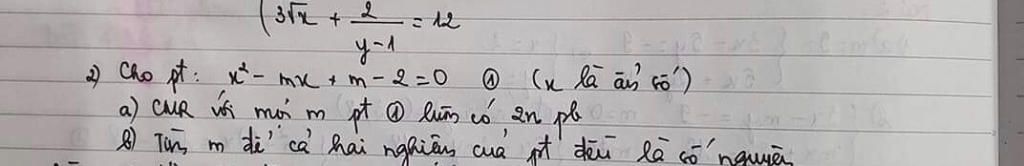 3√x + 2/(y-1) = 12
2) Cho pt: x² - mx + m - 2 = 0 ① (x là ẩn số)
a) CMR với mọi m pt ① luôn có 2n pb
b) Tìm m để cả hai nghiệm của pt đều là số nguyên